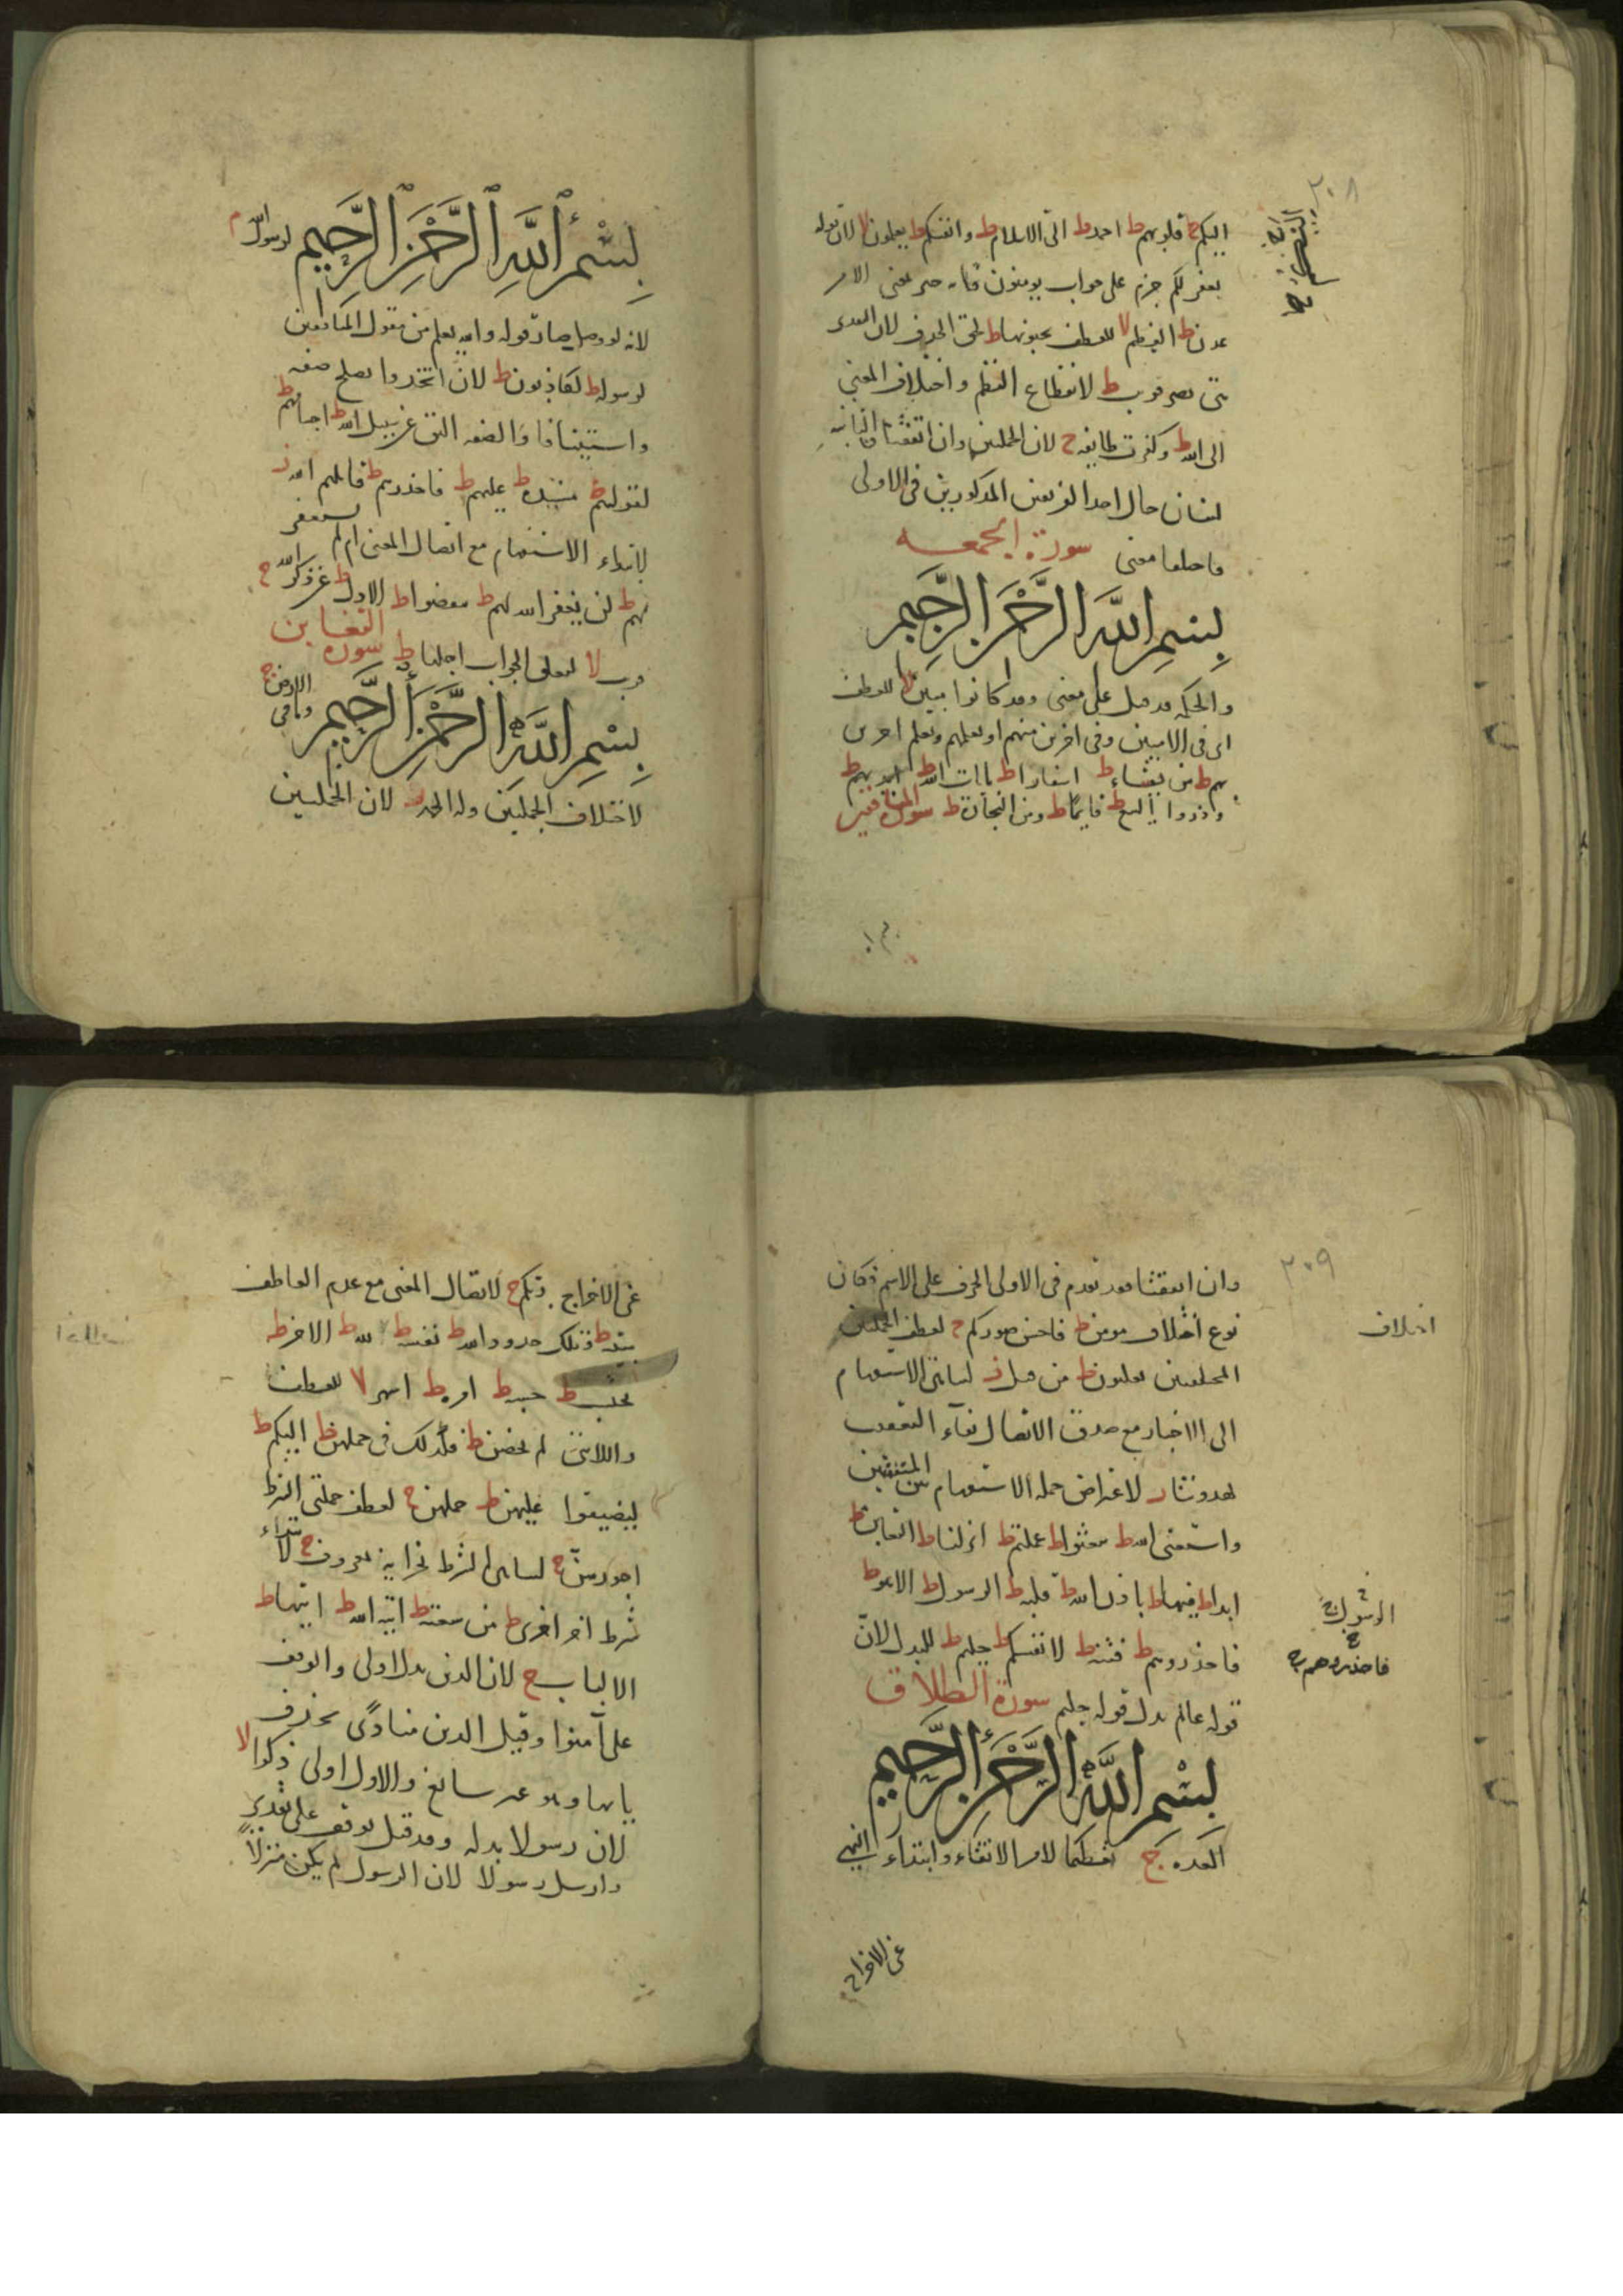 ٢٠٨
اليكم ج قلوبهم ط احمد ط الى الاسلام ط وانفسكم ط يعلمون لا لان قوله
يغفر لكم جزم على جواب يومنون فانه خبر بمعنى الامر
عدن ط العظيم لا للعطف تحبونها ط لحق الحذف لان التقدير
هي نصر قريب ط لانقطاع النظم واختلاف المعنى
الى الله ط وكفرت طايفه ج لان الجملتين وان اتفقتا فالثانيه
لبيان حال احد الفريقين المذكورين في الاولى
فاختلفا معنى سورة الجمعه
بسم الله الرحمن الرحيم
والحكمه قد قيل على معنى وقد كانوا مبين لا للعطف
اى في الاميين وفي اخرين منهم او يعلمهم ويعلم اخرين
بهم ط من يشاء ط اسفارا ط بايات الله ط ايديهم ط
وذروا البيع ط قايما ط ومن التجارة ط سورة المنافقين
لرسول الله م
بسم الله الرحمن الرحيم
لانه لو وصل صار قوله والله يعلم من مقول المنافقين
لرسوله ط لكاذبون ط لان اتخذوا يصلح صفه
واستينافا والصفه اليق عن سبيل الله ط اجسامهم ط
لقولهم ط مسنده ط عليهم ط فاحذرهم ط قاتلهم الله ز
لابتداء الاستفهام مع اتصال المعنى ام لم تستغفر
لهم ط لن يغفر الله لهم ط ينفضوا ط الاذل ط عن ذكر الله ج
قريب لا لتعلق الجواب اجلها ط سورة التغابن
بسم الله الرحمن الرحيم وما في الارض ج
لاختلاف الجملتين وله الحمد ز لان الجملتين
٢٠٩
وان اتفقتا فقد تقدم في الاولى الحرف على الاسم فكان
نوع اختلاف مومن ط فاحسن صوركم ج لعطف الجملتين
اختلاف
المختلفتين تعلنون ط من قبل ز لتناهى الاستفهام
الى الاخبار مع صدق الاتصال بفاء التعقيب
يهدوننا ز لاعتراض جمله الاستفهام بين المتفقتين
واستغنى الله ط تبعثوا ط عملتم ط انزلنا ط التغابن ط
ابدا ط فيها ط باذن الله ط قلبه ط الرسول ط الا هو ط
الرسول ج
فاحذروهم ط فتنه ط لانفسكم ط حليم ط للبدل لان
فاحذروهم ج
قوله عالم بدل قوله حليم سورة الطلاق
بسم الله الرحمن الرحيم
العده ج تعظيما لامر الاتقاء وابتداء النهي
عن الاخراج
عن الاخراج ربكم ج لاتصال المعنى مع عدم العاطف
مبينه ط وتلك حدود الله ط نفسه ط لله ط الاخر ط
يحتسب ط حسبه ط امره ط اشهر لا للعطف
واللائى لم يحضن ط فكذلك في حملهن ط اليكم ط
لتضيقوا عليهن ط حملهن ج لعطف جملتى الشرط
اجورهن ج لتناهى الشرط بجزايه بمعروف ج لابتداء
شرط اخر اخرى ط من سعته ط اتيه الله ط اتيها ط
الالباب ج لان الذين بدل اولى والوقف
على آمنوا وقيل الذين منادى بحذف
يايها وهو غير سايغ والاول اولى ذكرا لا
لان رسولا بدله وقد قيل يوقف على تقدير
وارسل رسولا لان الرسول لم يكن منزلا